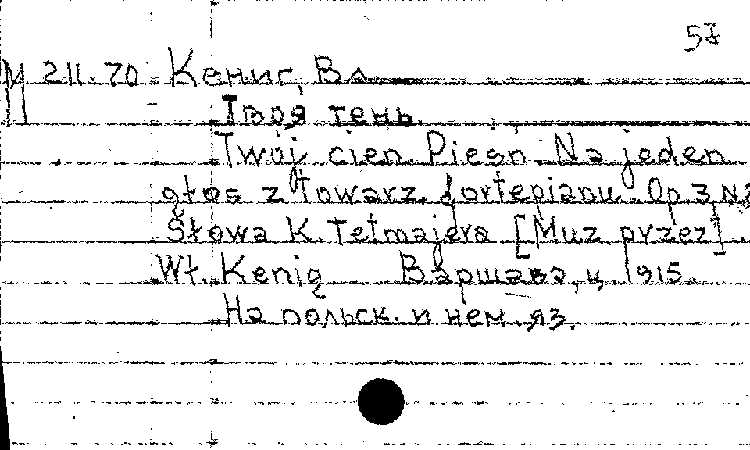 57
М 211.70 Кениг, Вл.
Твоя тень.
Twój cien Pieśn Na jeden
głos z towarz. fortepianu. Op. 3, N2
Słowa K. Tetmajera [Muz przez]
Wł. Kenig Варшава, ц. 1915.
На польск. и нем. яз.